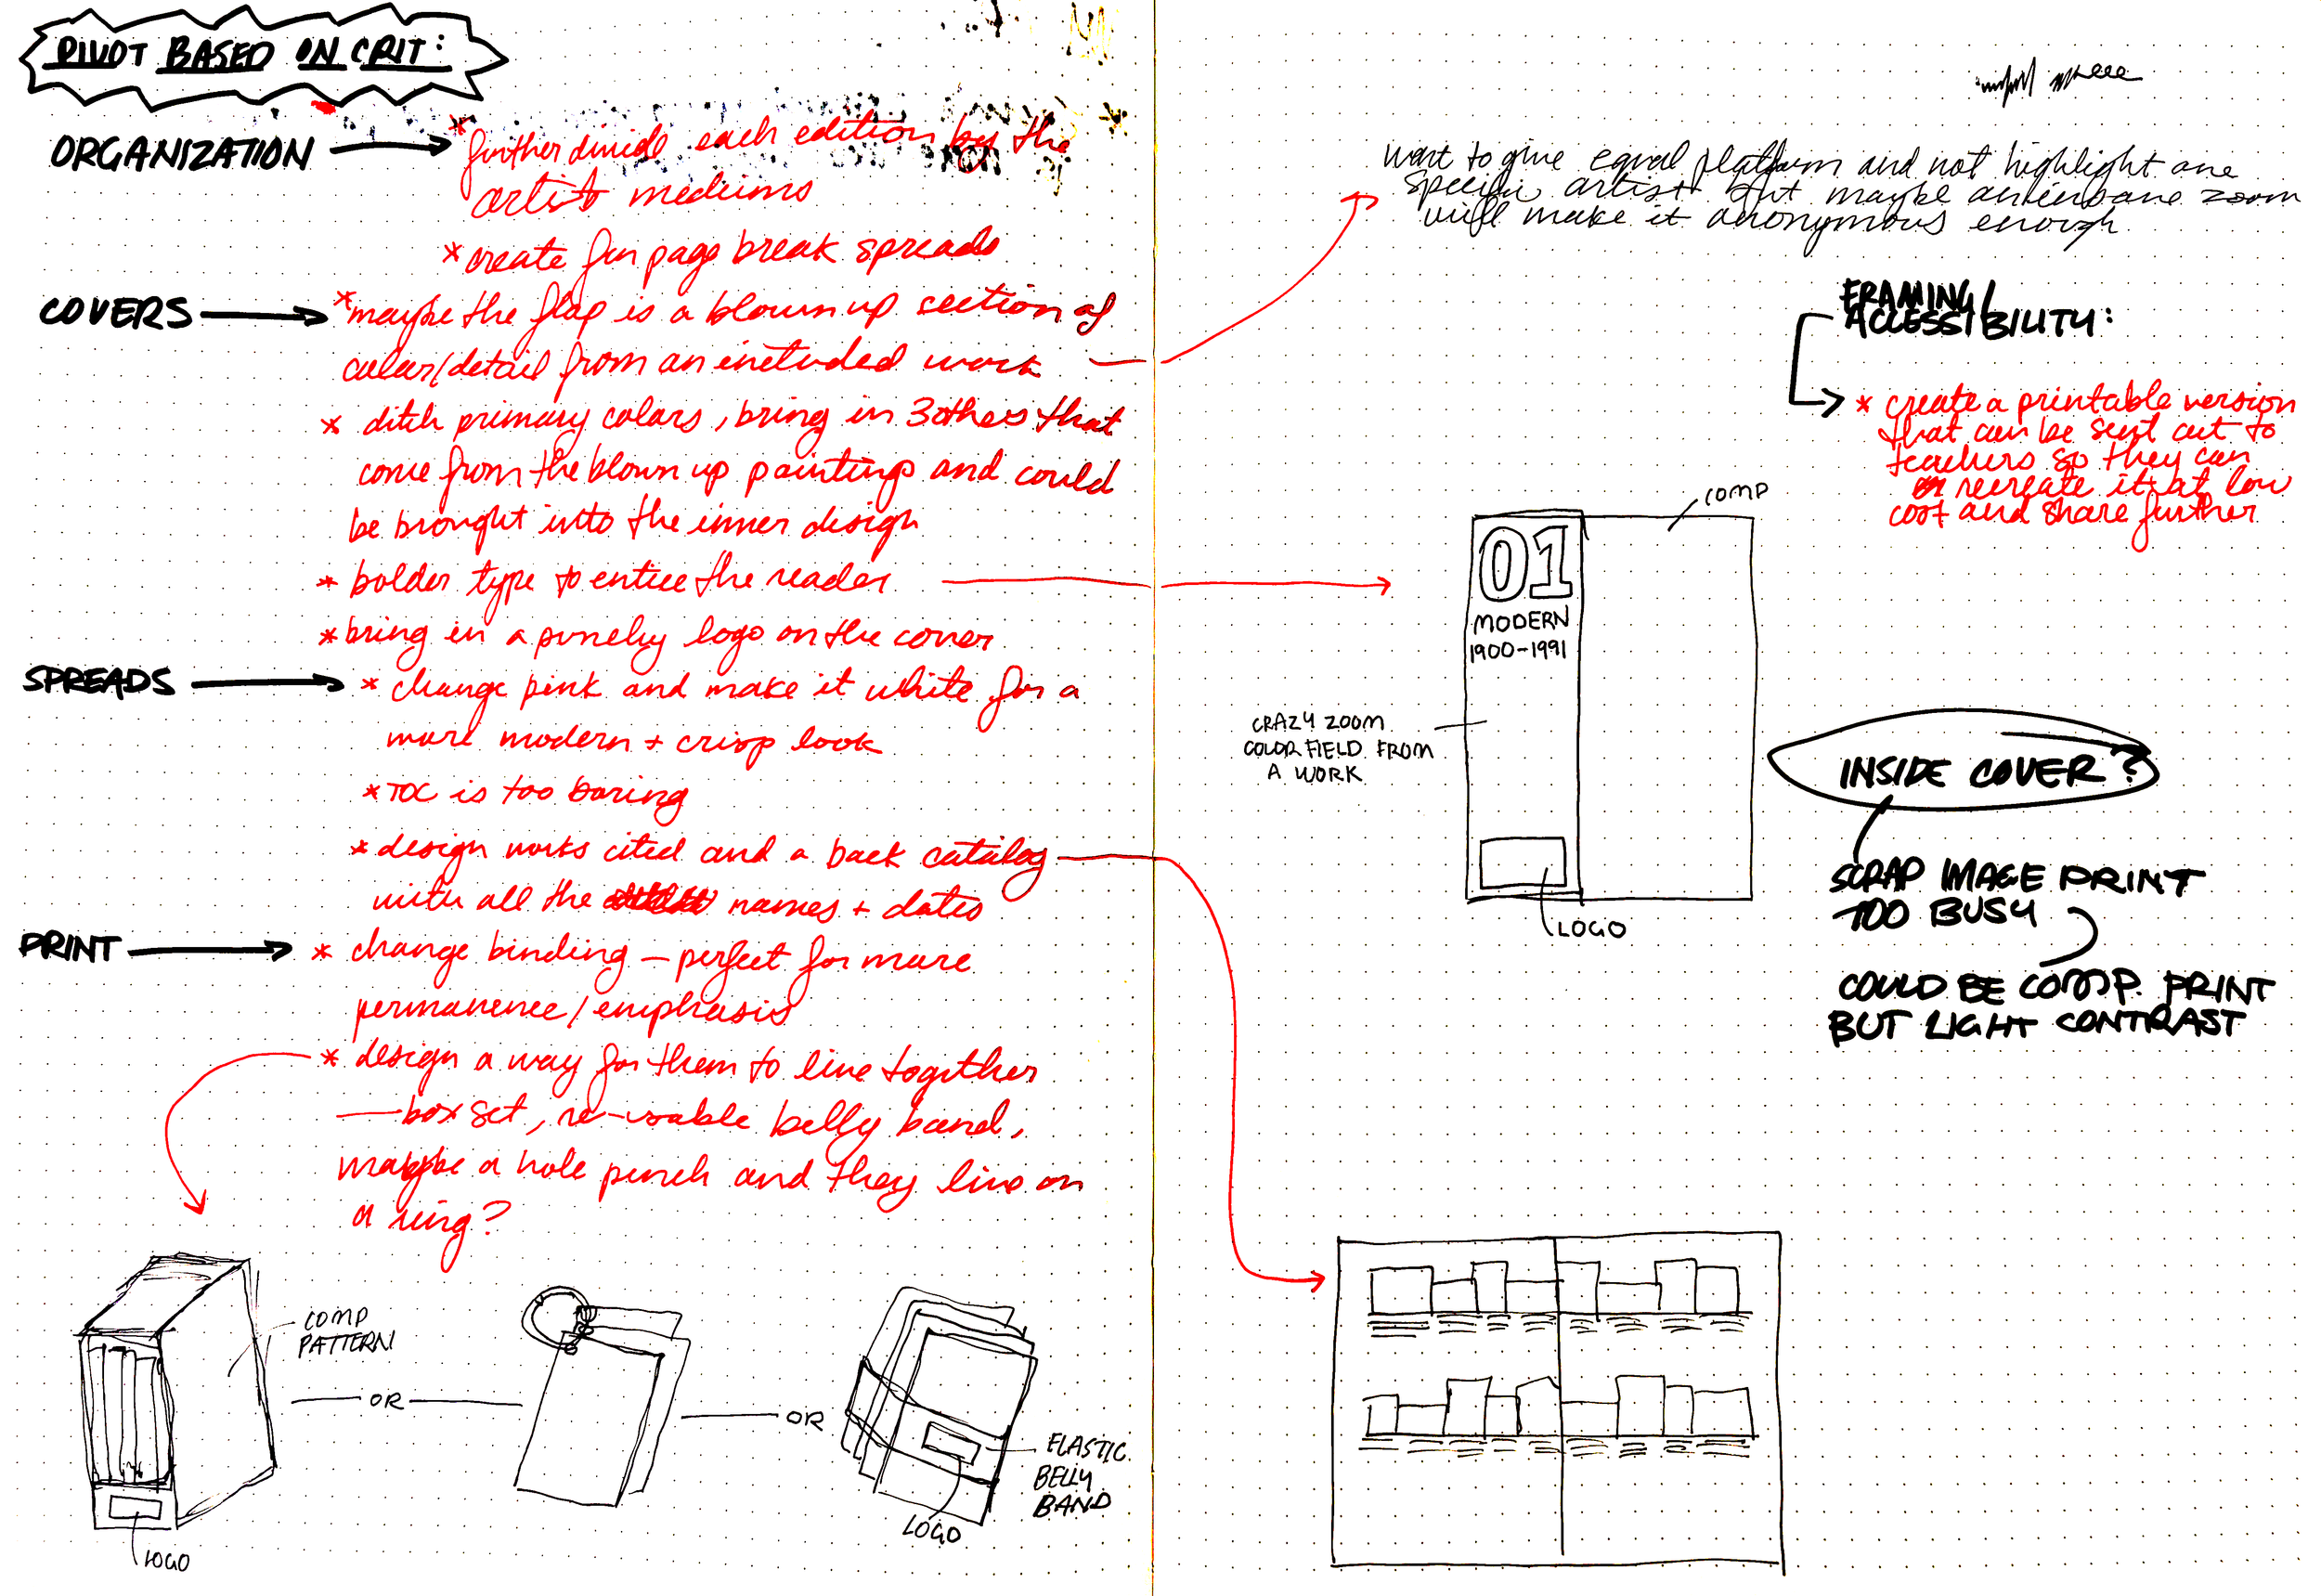 PIVOT BASED ON CRIT:
ORGANIZATION
* further divide each edition by the
artist mediums
* create fun page break spreads
COVERS
* maybe the flap is a blown up section of
color/detail from an included work
* ditch primary colors, bring in 3 others that
come from the blown up paintings and could
be brought into the inner design
* bolder type to entice the reader
* bring in a punchy logo on the cover
SPREADS
* change pink and make it white for a
more modern + crisp look
* TOC is too boring
* design works cited and a back catalog
with all the names + dates
PRINT
* change binding - perfect for more
permanence/emphasis
* design a way for them to live together
— box set, re-usable belly band,
maybe a hole punch and they live on
a ring?
COMP
PATTERN
LOGO
OR
OR
ELASTIC
BELLY
BAND
LOGO
want to give equal platform and not highlight one
specific artist but maybe an insane zoom
will make it anonymous enough
FRAMING/
ACCESSIBILITY:
* create a printable version
that can be sent out to
teachers so they can
recreate it at low
cost and share further
COMP
01
MODERN
1900-1991
CRAZY ZOOM
COLOR FIELD FROM
A WORK
LOGO
INSIDE COVER?
SCRAP IMAGE PRINT
TOO BUSY
COULD BE COMP. PRINT
BUT LIGHT CONTRAST